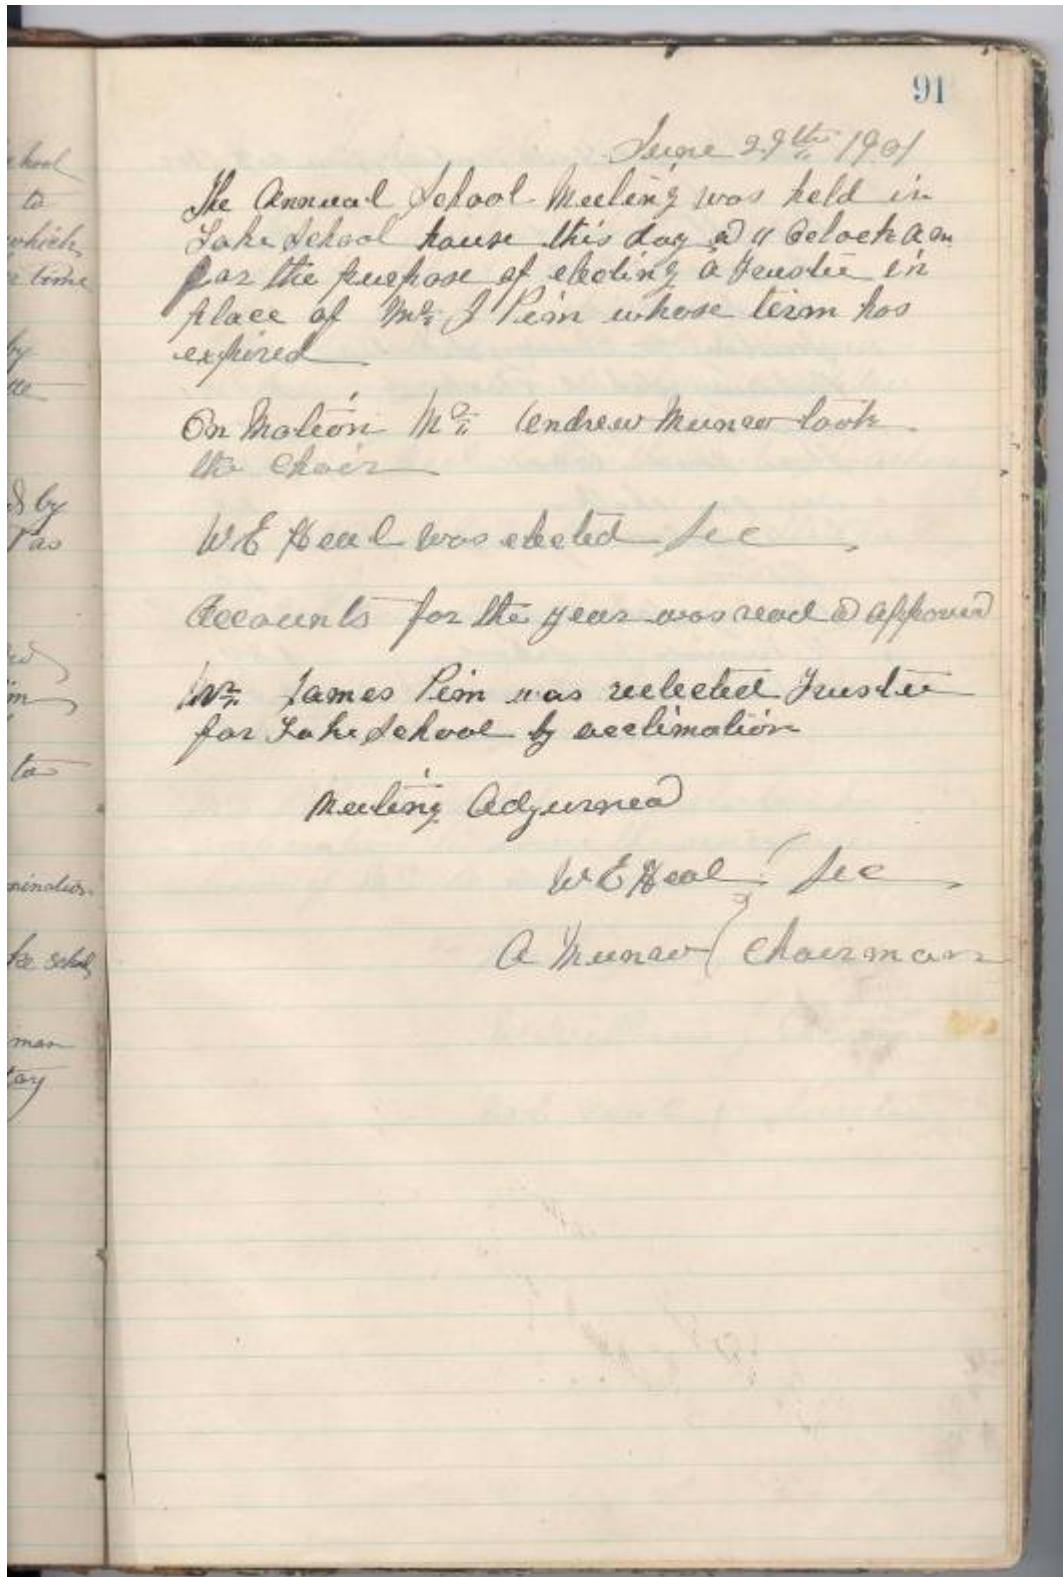 91
June 29th 1901
The Annual School Meeting was held in
Lake School house this day at 11 Oclock a m
for the purpose of electing a Trustee in
place of Mr J Pim whose term has
expired
On Motion Mr Andrew Munro took
the Chair
W E Heal was elected Sec
Accounts for the year was read & approved
Mr James Pim was reelected Trustee
for Lake School by acclimation
Meeting Adjurned
W E Heal Sec
A Munro Chairman